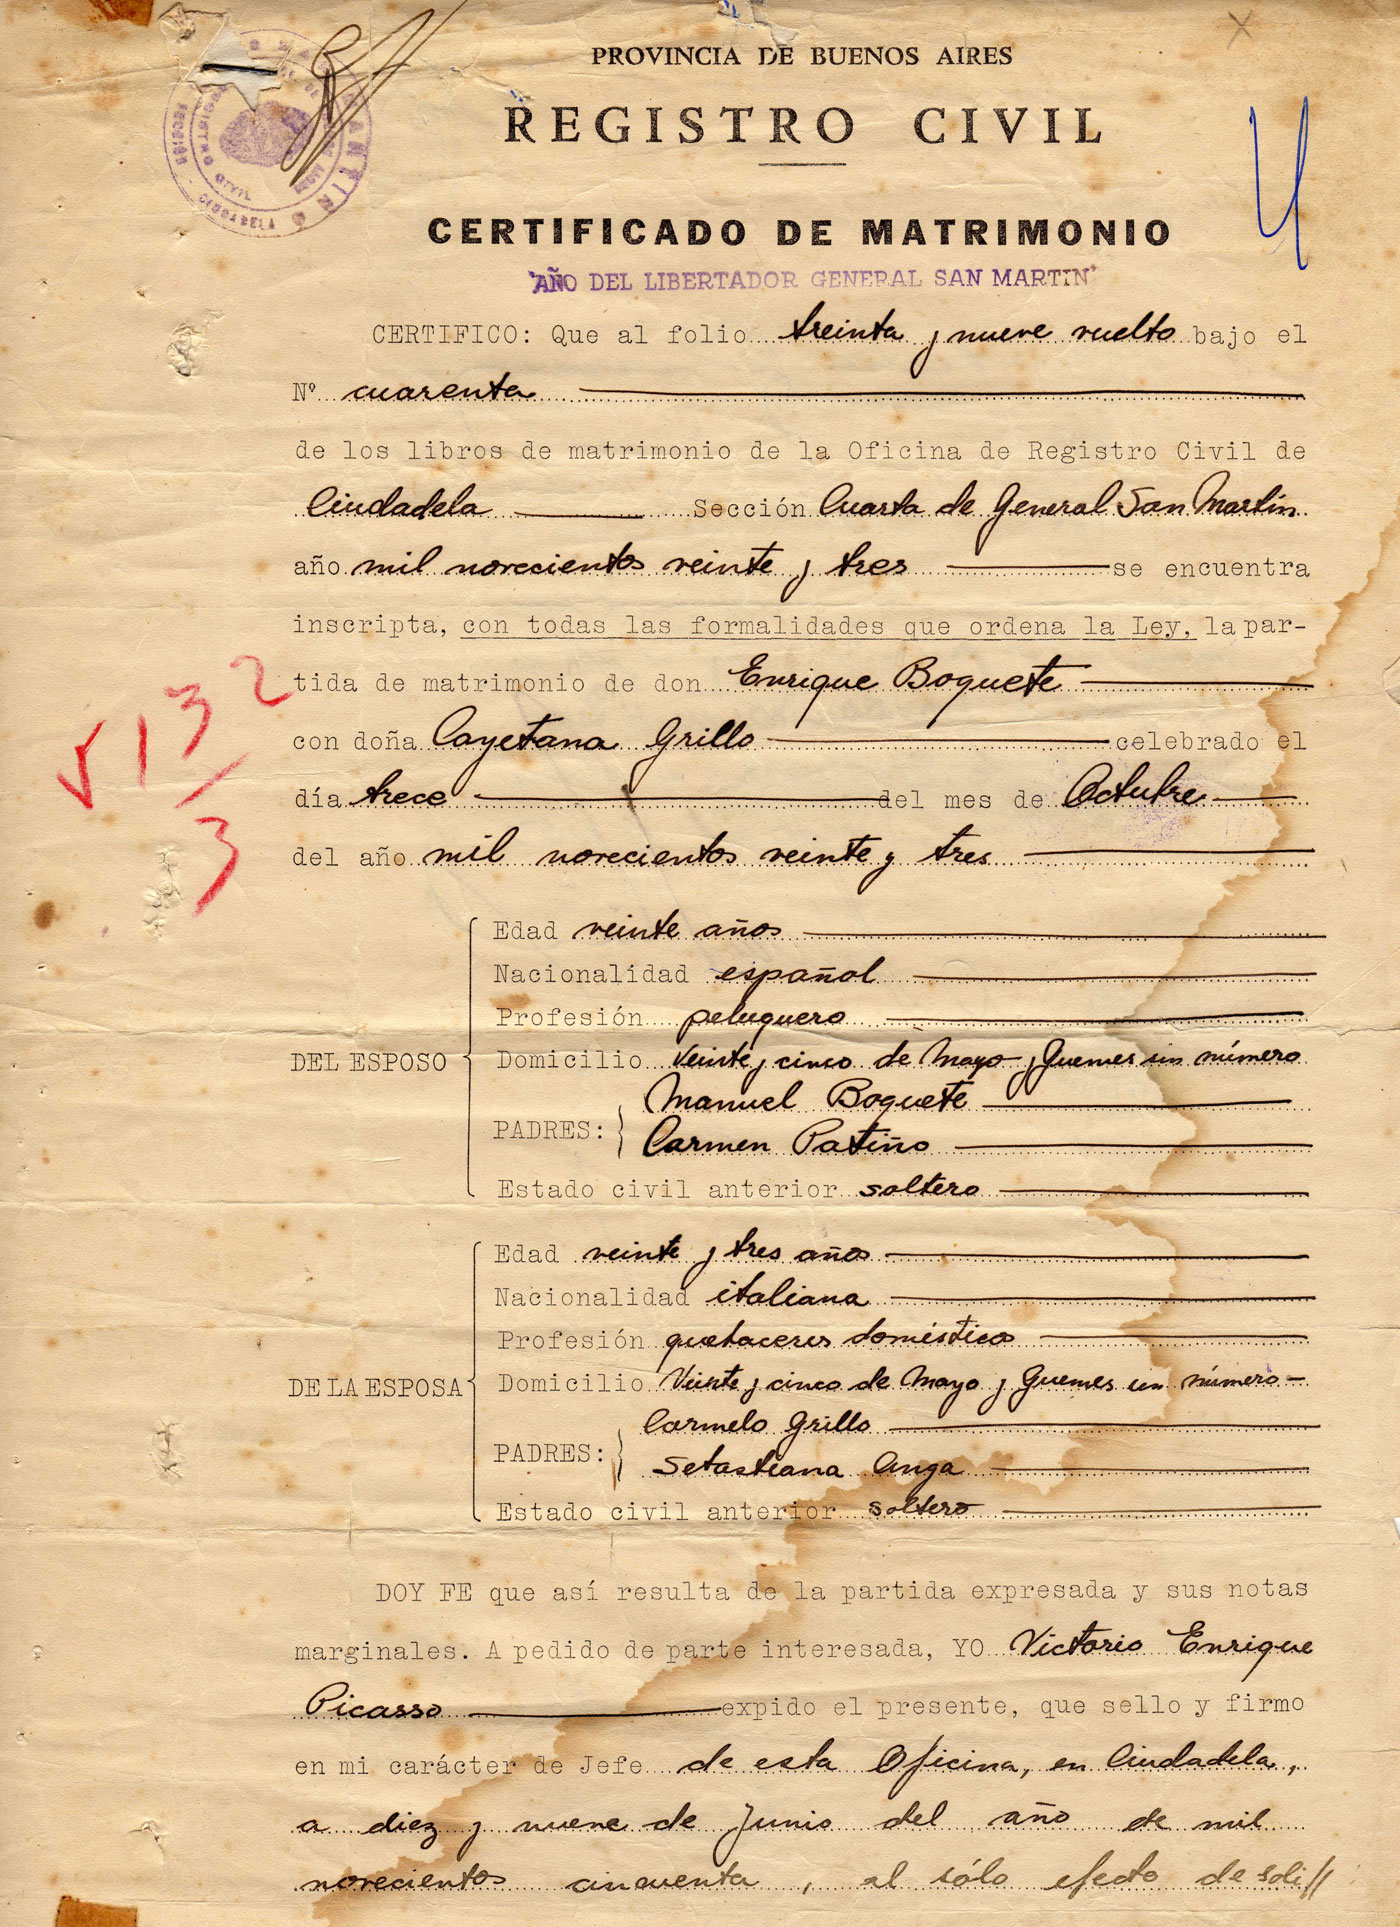 PROVINCIA DE BUENOS AIRES
REGISTRO CIVIL
4
CERTIFICADO DE MATRIMONIO
"AÑO DEL LIBERTADOR GENERAL SAN MARTIN"
REGISTRO CIVIL
SECCIÓN
CIUDADELA
CERTIFICO: Que al folio treinta y nueve vuelto bajo el
Nº cuarenta
de los libros de matrimonio de la Oficina de Registro Civil de
Ciudadela Sección Cuarta de General San Martín
año mil novecientos veinte y tres se encuentra
inscripta, con todas las formalidades que ordena la Ley, la par-
tida de matrimonio de don Enrique Boquete
con doña Cayetana Grillo celebrado el
día trece del mes de Octubre
del año mil novecientos veinte y tres
132
3
DEL ESPOSO
Edad veinte años
Nacionalidad español
Profesión peluquero
Domicilio Veinte y cinco de Mayo y Guemes sin número
PADRES: Manuel Boquete
Carmen Patiño
Estado civil anterior soltero
DE LA ESPOSA
Edad veinte y tres años
Nacionalidad italiana
Profesión quehaceres domésticos
Domicilio Veinte y cinco de Mayo y Guemes sin número
PADRES: Carmelo Grillo
Sebastiana Anga
Estado civil anterior soltero
DOY FE que así resulta de la partida expresada y sus notas
marginales. A pedido de parte interesada, YO Victorio Enrique
Picasso expido el presente, que sello y firmo
en mi carácter de Jefe de esta Oficina, en Ciudadela,
a diez y nueve de Junio del año de mil
novecientos cincuenta, al sólo efecto de soli//